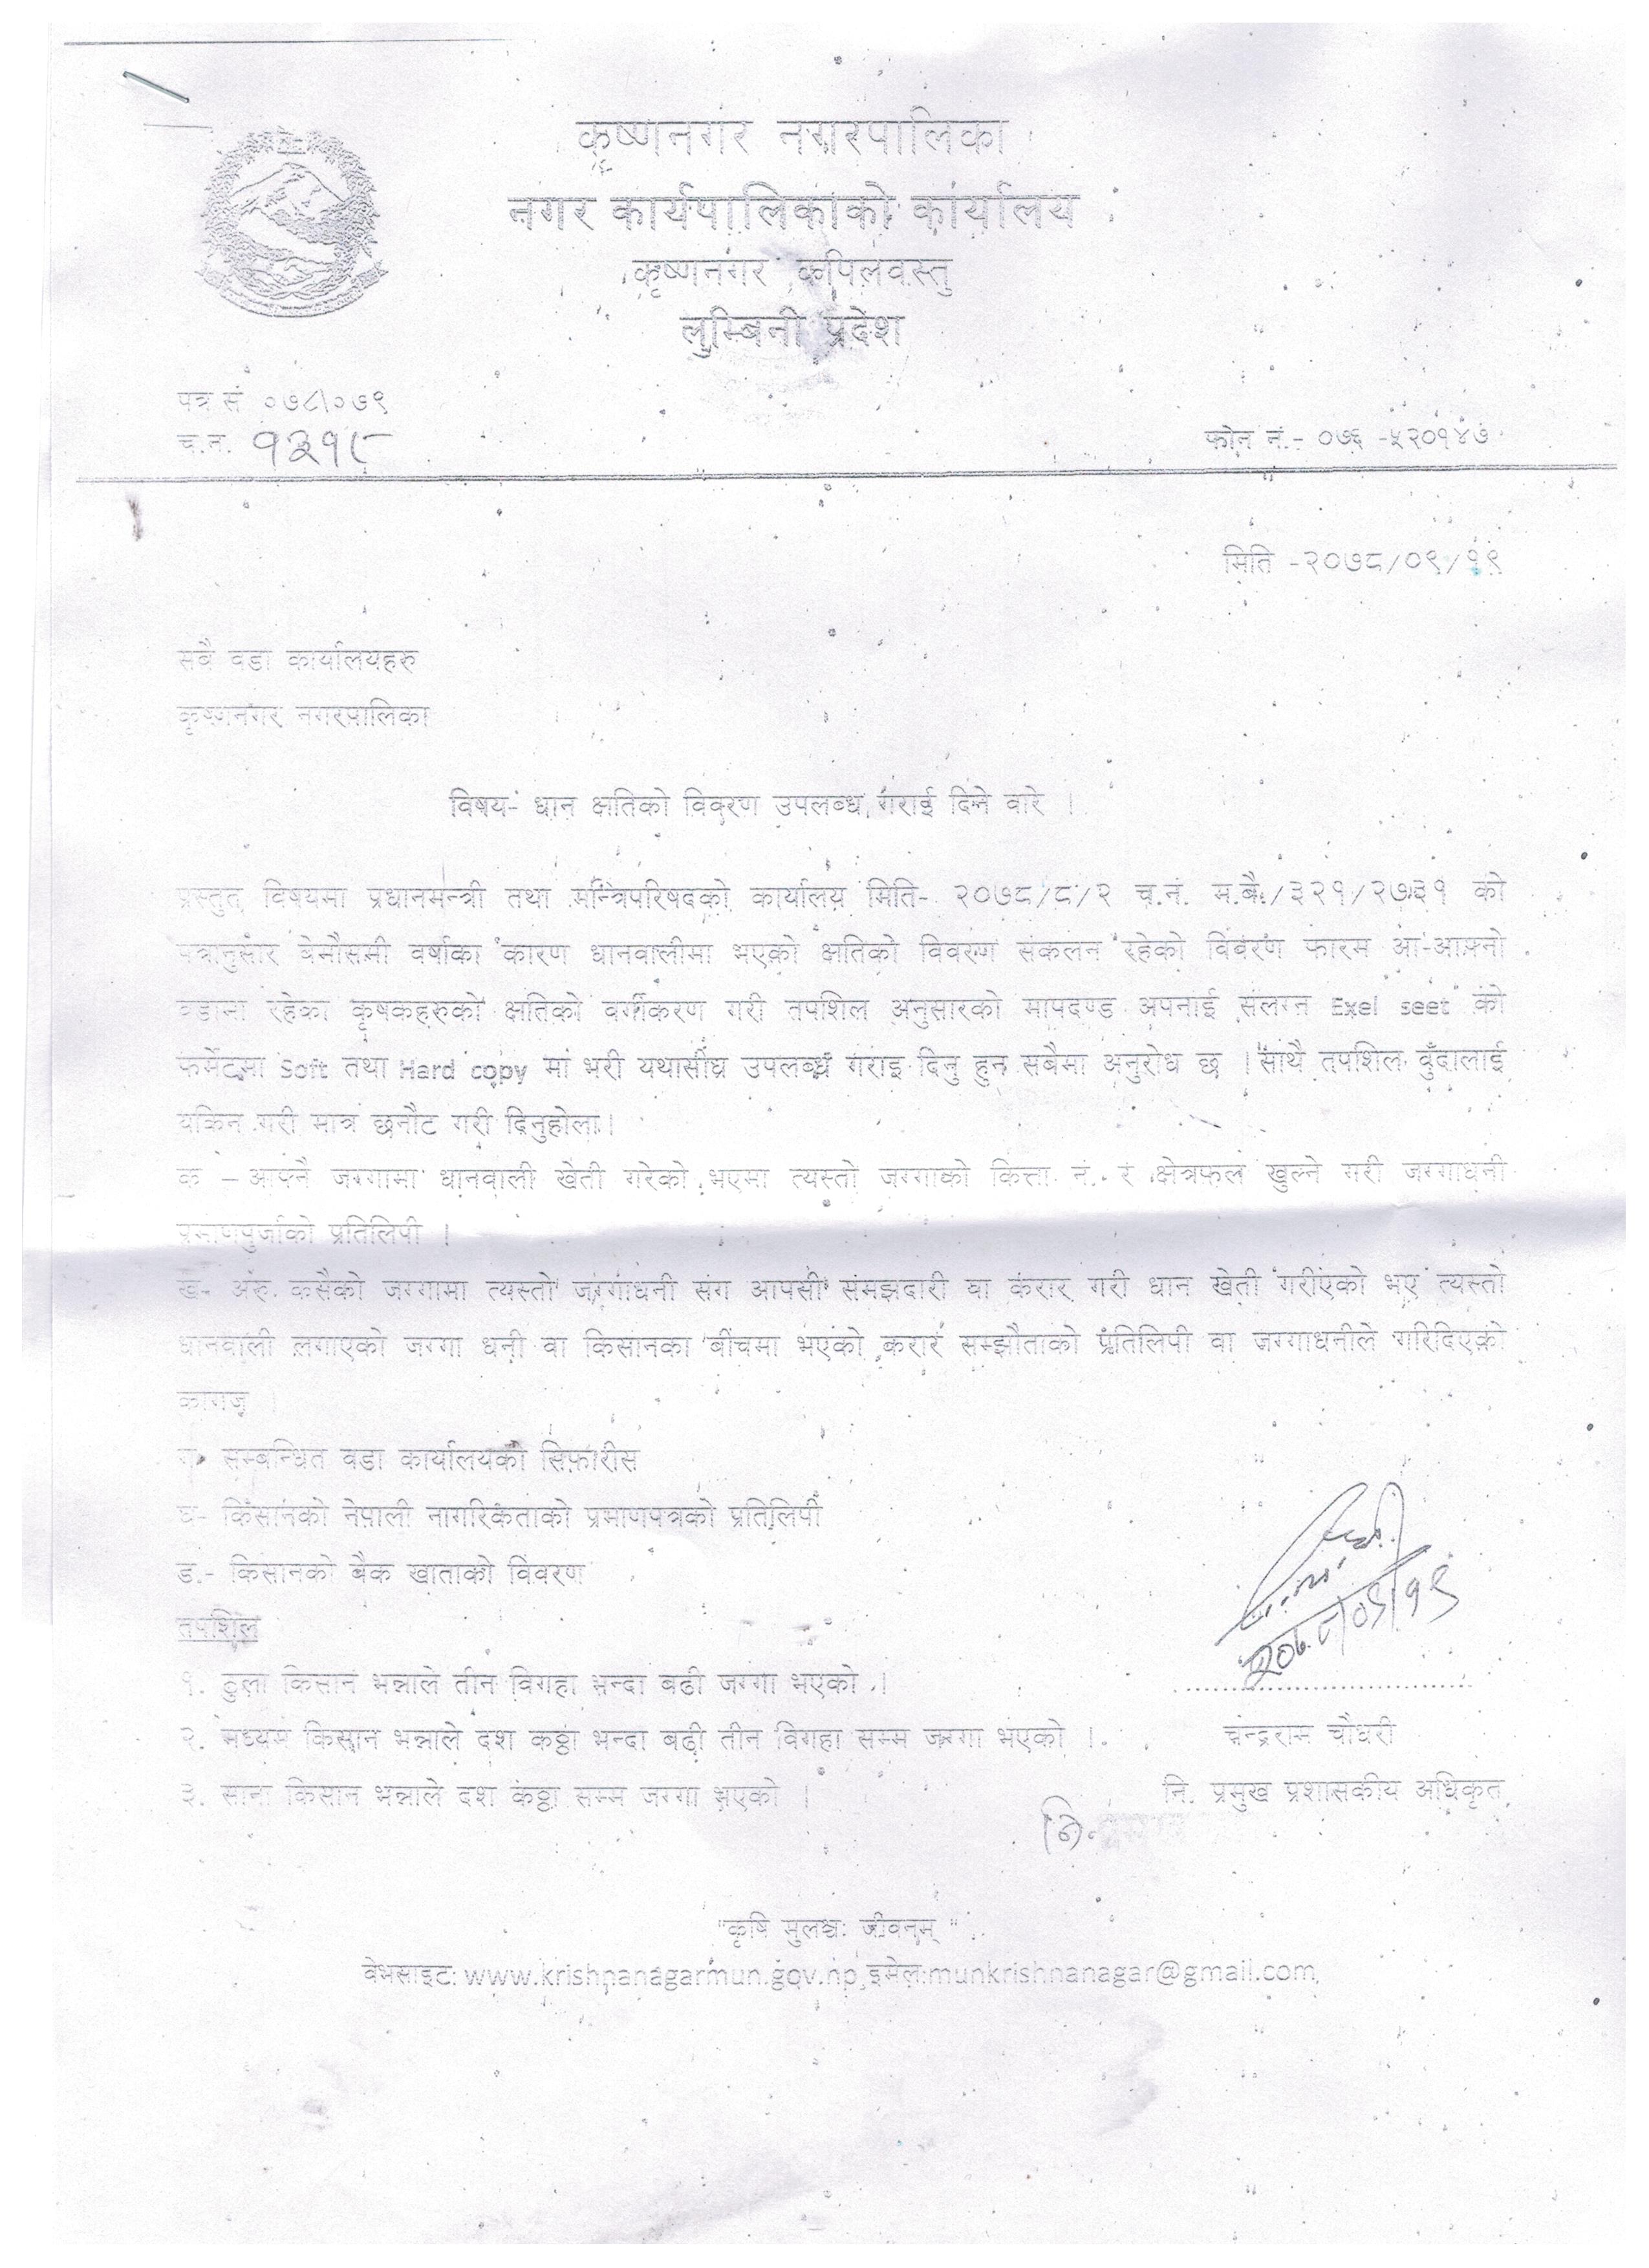 कृष्णनगर नगरपालिका
नगर कार्यपालिकाको कार्यालय
कृष्णनगर कपिलवस्तु
लुम्बिनी प्रदेश
पत्र सं ०७८\०७९
च.न. १३१८
फोन नं.- ०७६ -५२०१४७
मिति -२०७८/०९/१९
सबै वडा कार्यालयहरु
कृष्णनगर नगरपालिका
विषय- धान क्षतिको विवरण उपलब्ध गराई दिने वारे ।
प्रस्तुत विषयमा प्रधानमन्त्री तथा मन्त्रिपरिषदको कार्यालय मिति- २०७८/८/२ च.नं. म.बै./३२१/२७३१ को
पत्रानुसार बेमौसमी वर्षाका कारण धानवालीमा भएको क्षतिको विवरण संकलन रहेको विवरण फारम आ-आफ्नो
वडामा रहेका कृषकहरुको क्षतिको वर्गीकरण गरी तपशिल अनुसारको मापदण्ड अपनाई संलग्न Exel seet को
फर्मेटमा Soft तथा Hard copy मा भरी यथासीघ्र उपलब्ध गराइ दिनु हुन सबैमा अनुरोध छ । साथै तपशिल वुँदालाई
यकिन गरी मात्र छनौट गरी दिनुहोला।
क – आफ्नै जग्गामा धानवाली खेती गरेको भएमा त्यस्तो जग्गाको कित्ता नं. र क्षेत्रफल खुल्ने गरी जग्गाधनी
प्रमाणपुर्जाको प्रतिलिपी ।
ख- अरु कसैको जग्गामा त्यस्तो जग्गाधनी संग आपसी संमझदारी वा करार गरी धान खेती गरीएको भए त्यस्तो
धानवाली लगाएको जग्गा धनी वा किसानका बीचमा भएको करार सम्झौताको प्रतिलिपी वा जग्गाधनीले गरिदिएको
कागज ।
ग- सम्बन्धित वडा कार्यालयको सिफारीस
घ- किसानको नेपाली नागरिकताको प्रमाणपत्रको प्रतिलिपी
ड.- किसानको बैक खाताको विवरण
तपशिल
१. ठुला किसान भन्नाले तीन विगहा भन्दा बढी जग्गा भएको ।
२. मध्यम किसान भन्नाले दश कठ्ठा भन्दा बढी तीन विगहा सम्म जग्गा भएको ।
३. साना किसान भन्नाले दश कठ्ठा सम्म जग्गा भएको ।
२०७८/०९/१९
चन्द्रराम चौधरी
नि. प्रमुख प्रशासकीय अधिकृत
नि.
"कृषि मुलश्च: जीवनम् "
वेभसाइट: www.krishnanagarmun.gov.np इमेल:munkrishnanagar@gmail.com